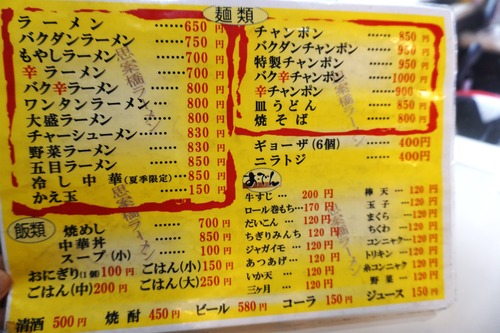 麺類
ラーメン……650円
バクダンラーメン……750円
もやしラーメン……700円
辛ラーメン……700円
バク辛ラーメン……800円
ワンタンラーメン……800円
大盛ラーメン……800円
チャーシューメン……830円
野菜ラーメン……830円
五目ラーメン……850円
冷し中華(夏季限定)……850円
かえ玉……150円
チャンポン……850円
バクダンチャンポン……950円
特製チャンポン……950円
バク辛チャンポン……1000円
辛チャンポン……900円
皿うどん……850円
焼そば……800円
ギョーザ(6個)……400円
ニラトジ……400円
飯類
焼めし……700円
中華丼……850円
スープ(小)……100円
おにぎり(1個)100円
ごはん(小)150円
ごはん(中)200円
ごはん(大)250円
おでん
牛すじ…200円
ロール巻もち…170円
だいこん…120円
ちぎりみんち120円
ジャガイモ…120円
あつあげ…120円
いか天…120円
三ヶ月…120円
棒天…120円
玉子…120円
まくら…120円
ちくわ…120円
コンニャク…120円
トリキン…120円
糸コンニャク120円
野菜…120円
清酒500円
焼酎450円
ビール580円
コーラ150円
ジュース150円
思案橋ラーメン
思案橋ラーメン
思案橋ラーメン
思案橋ラーメン